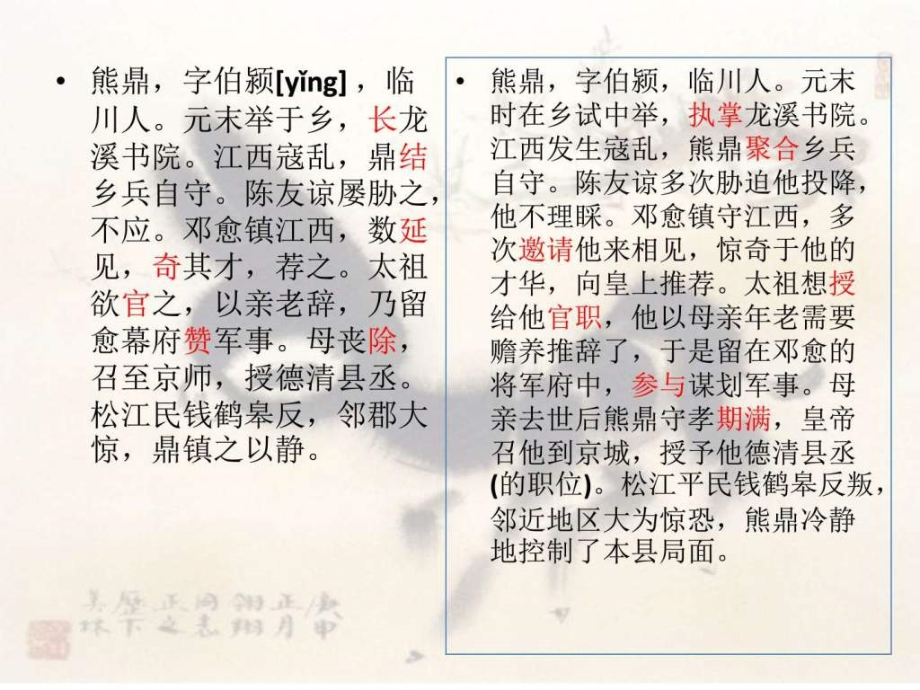 • 熊鼎，字伯颍[yǐng]，临
川人。元末举于乡，长龙
溪书院。江西寇乱，鼎结
乡兵自守。陈友谅屡胁之，
不应。邓愈镇江西，数延
见，奇其才，荐之。太祖
欲官之，以亲老辞，乃留
愈幕府赞军事。母丧除，
召至京师，授德清县丞。
松江民钱鹤皋反，邻郡大
惊，鼎镇之以静。
• 熊鼎，字伯颍，临川人。元末
时在乡试中举，执掌龙溪书院。
江西发生寇乱，熊鼎聚合乡兵
自守。陈友谅多次胁迫他投降，
他不理睬。邓愈镇守江西，多
次邀请他来相见，惊奇于他的
才华，向皇上推荐。太祖想授
给他官职，他以母亲年老需要
赡养推辞了，于是留在邓愈的
将军府中，参与谋划军事。母
亲去世后熊鼎守孝期满，皇帝
召他到京城，授予他德清县丞
(的职位)。松江平民钱鹤皋反叛，
邻近地区大为惊恐，熊鼎冷静
地控制了本县局面。